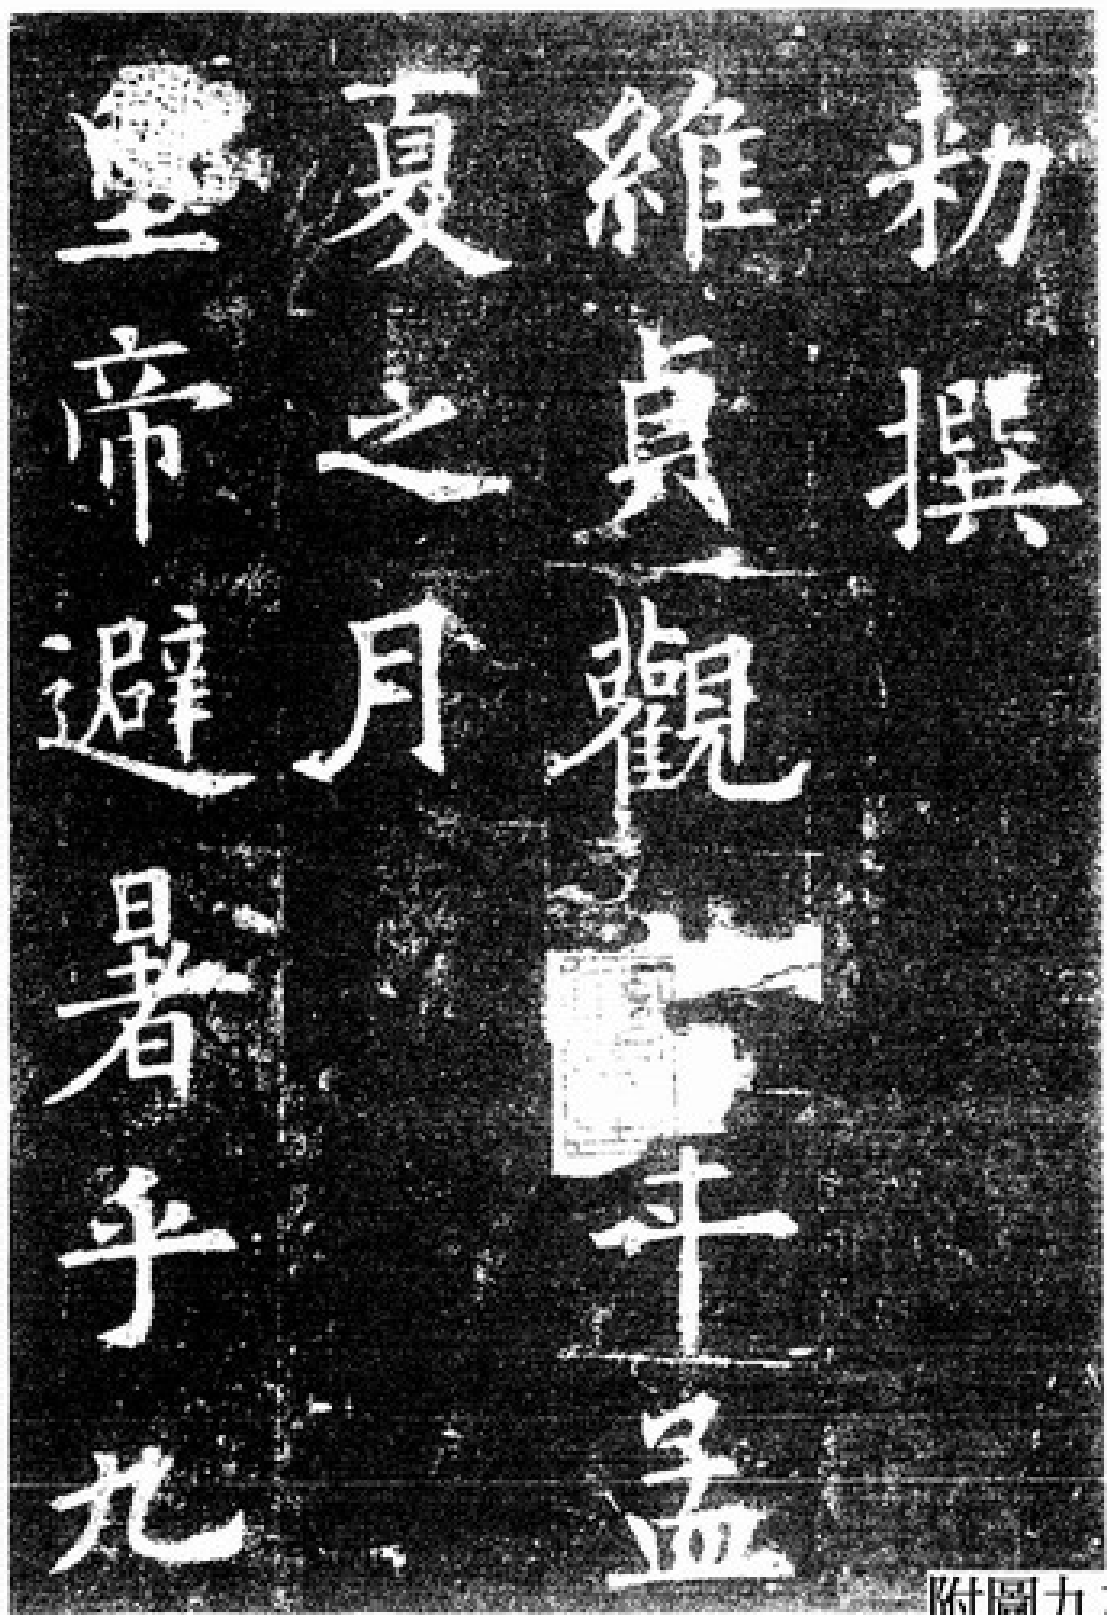 勑撰
維貞觀年孟
夏之月
皇帝避暑乎九
附圖九